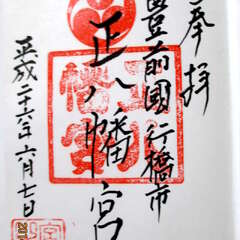 奉拝
豊前國行橋市
正八幡宮
平成二十六年六月七日